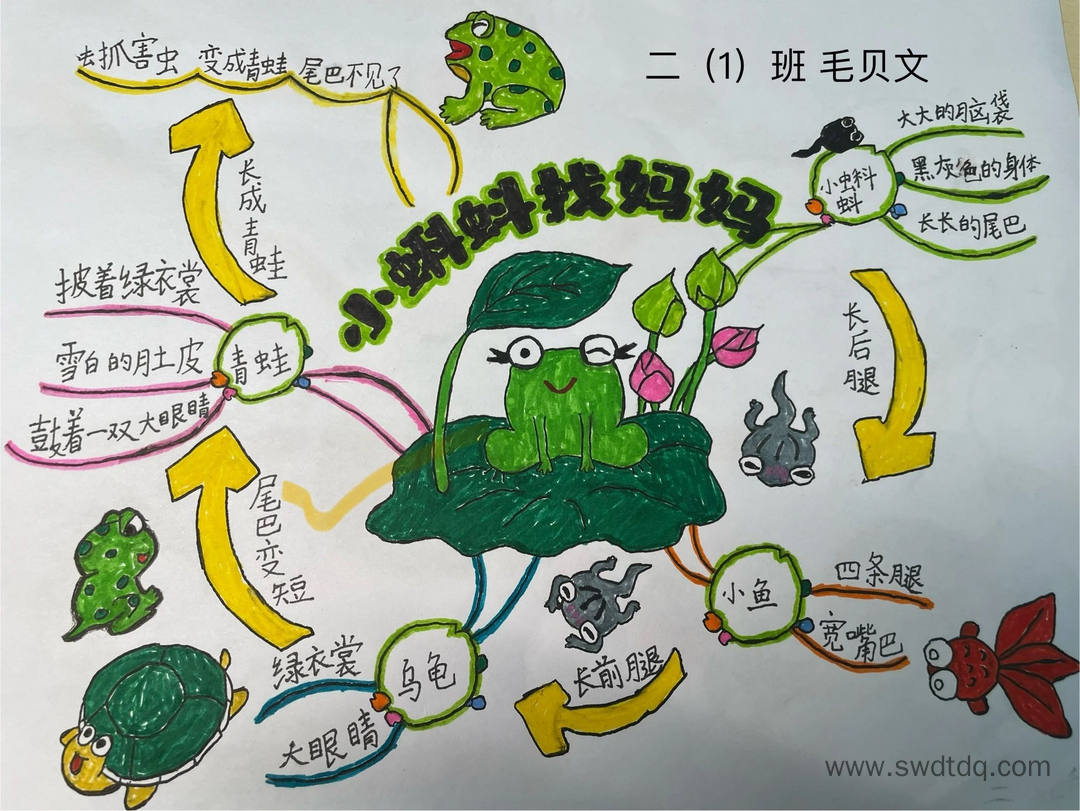 二（1）班 毛贝文
去抓害虫 变成青蛙 尾巴不见了
小蝌蚪找妈妈
小蝌
蚪
大大的脑袋
黑灰色的身体
长长的尾巴
长后腿
小鱼
四条腿
宽嘴巴
长前腿
乌龟
绿衣裳
大眼睛
尾巴变短
青蛙
披着绿衣裳
雪白的肚皮
鼓着一双大眼睛
长成青蛙
www.swdtdq.com